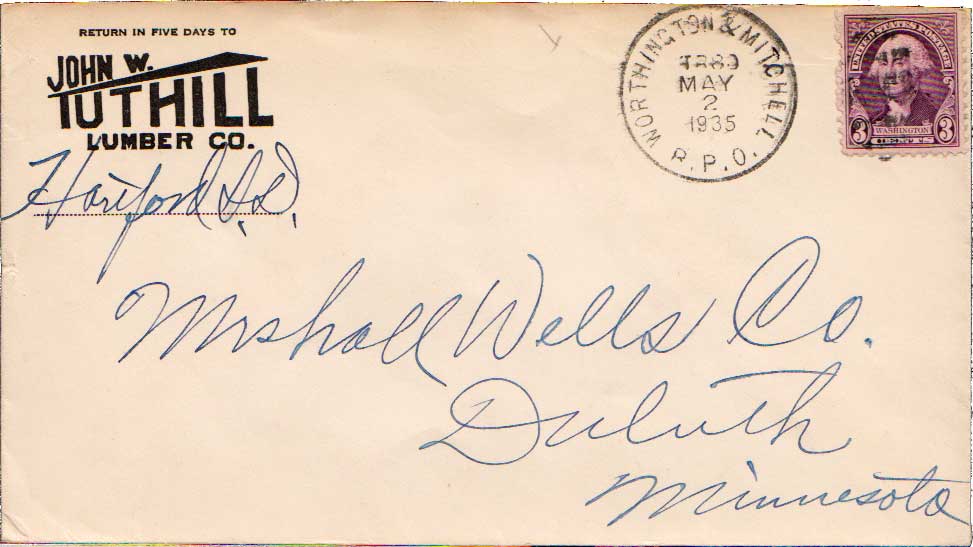 RETURN IN FIVE DAYS TO
JOHN W.
TUTHILL
LUMBER CO.
Hartford S.D.
WORTHINGTON & MITCHELL
MAY
2
1935
R.P.O.
UNITED STATES POSTAGE
3 WASHINGTON 3
CENTS
Mrshall Wells Co.
Duluth
Minnesota